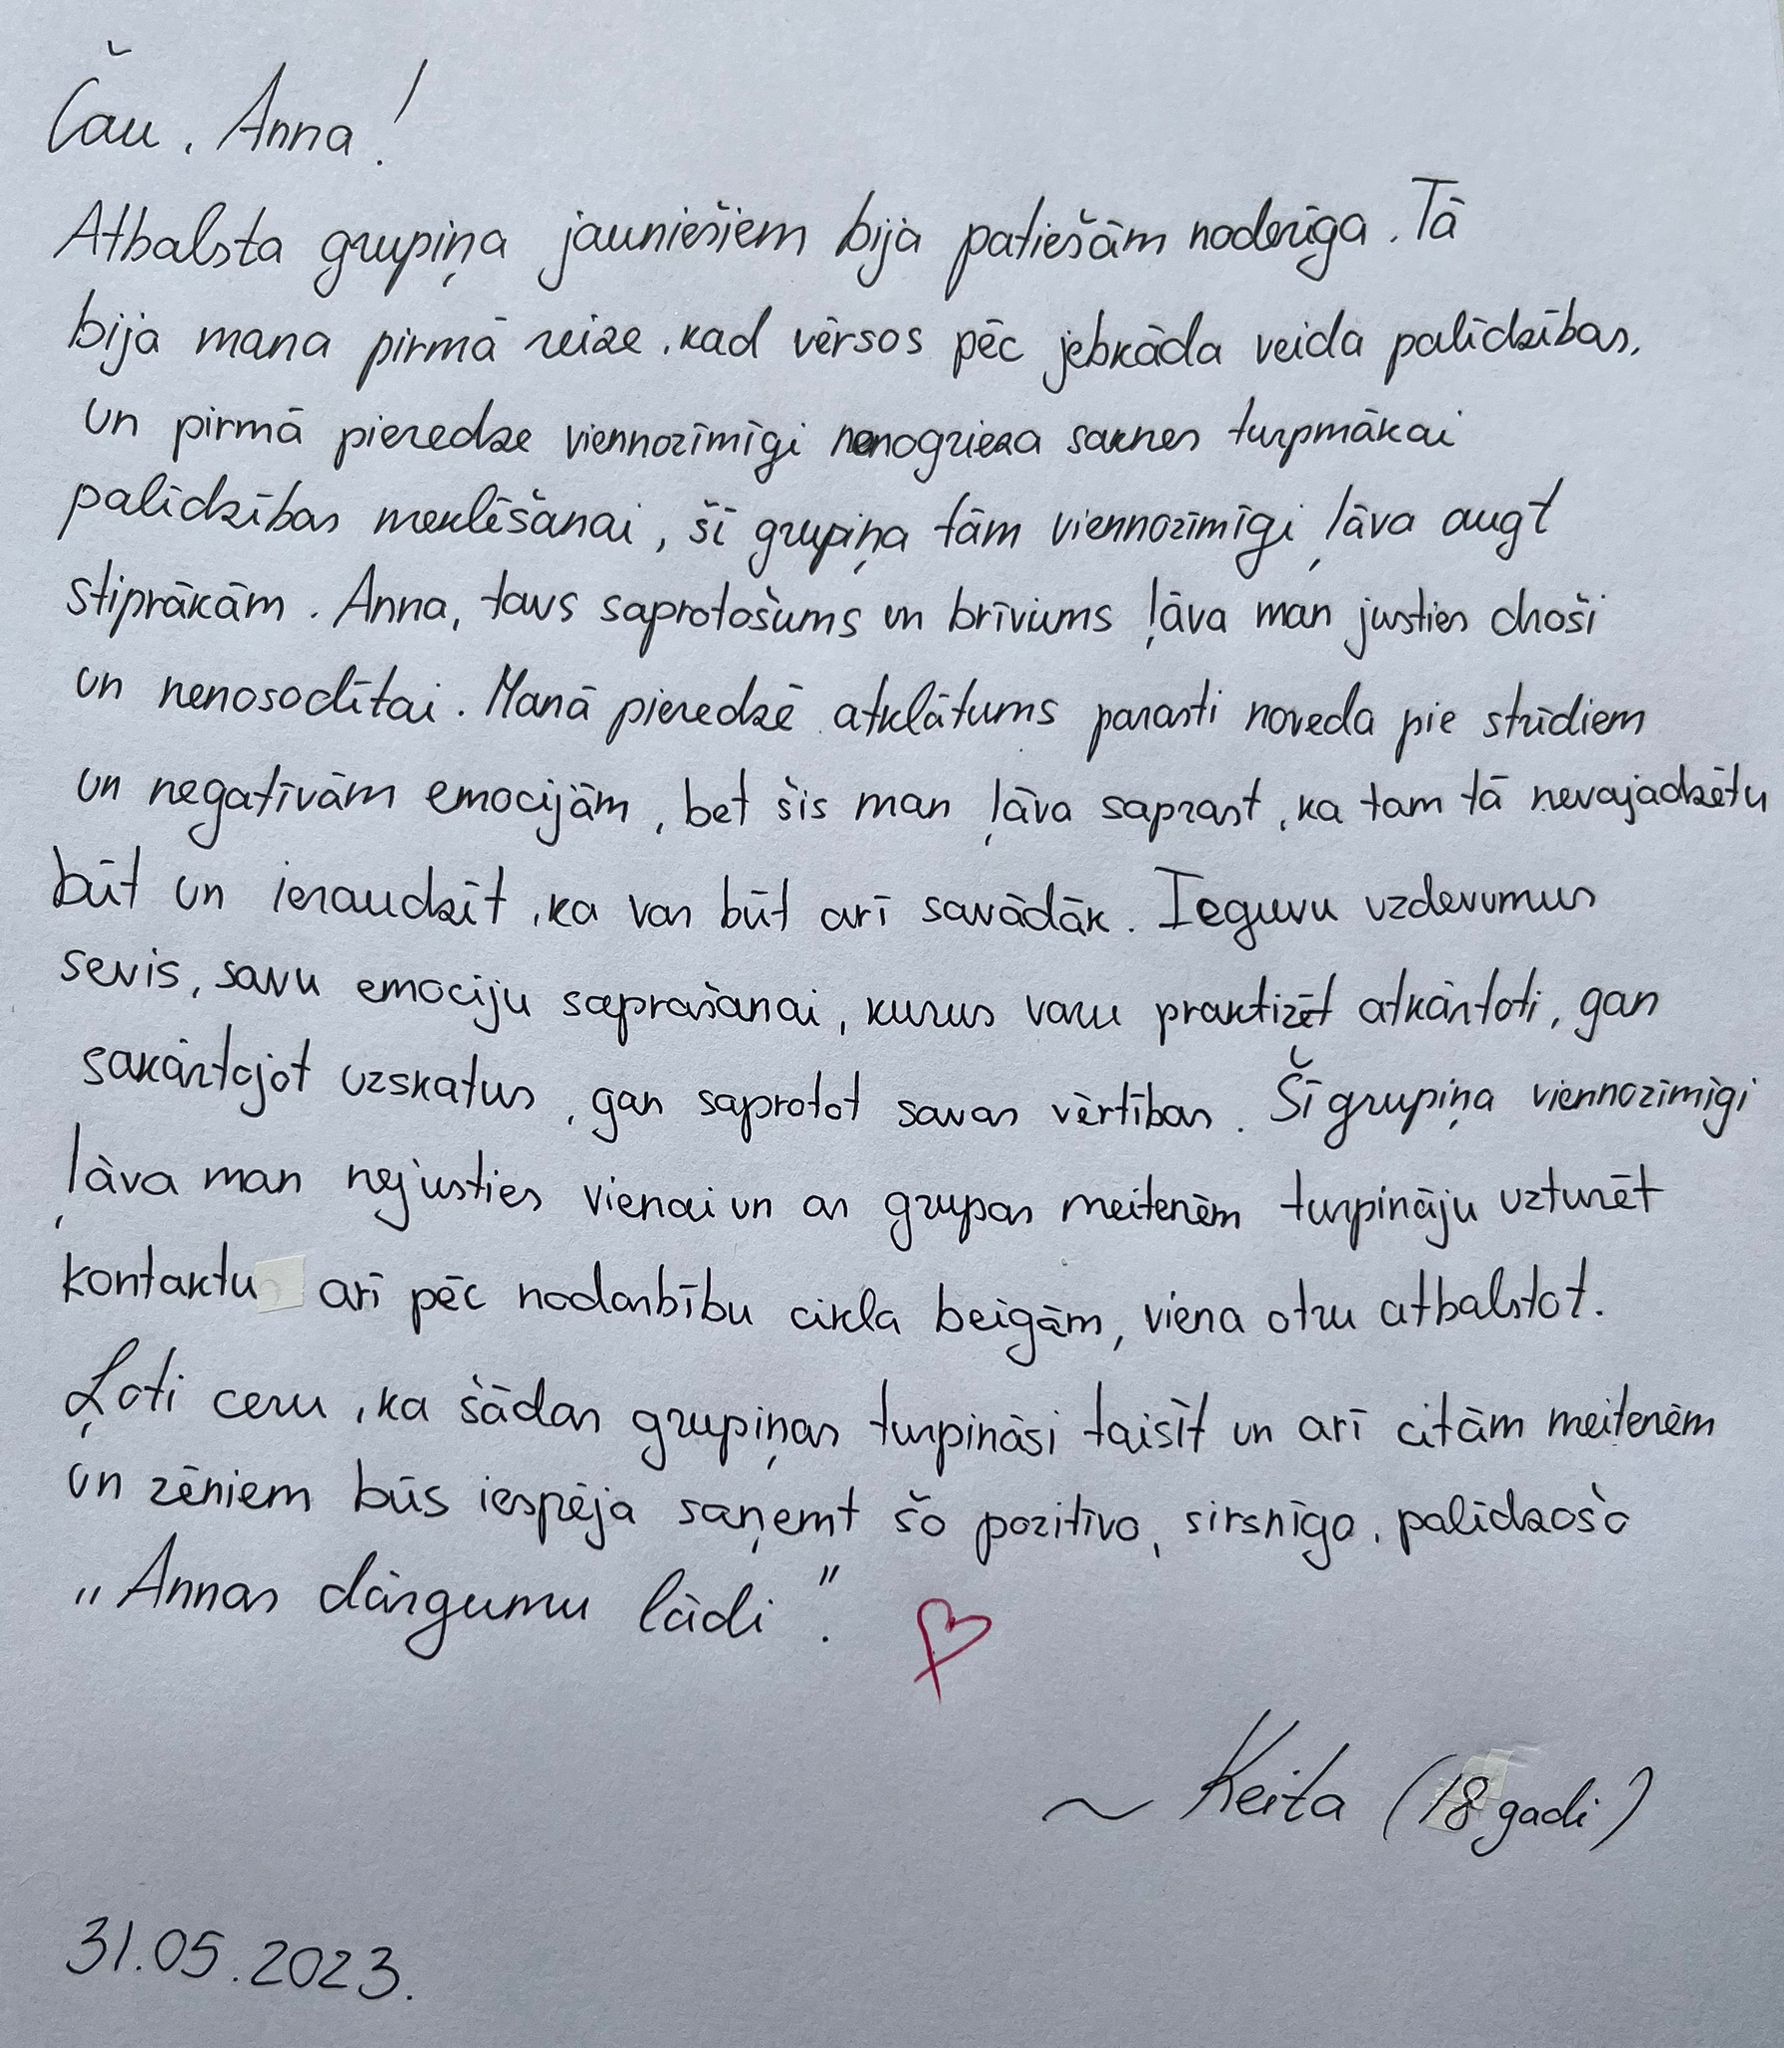 Čau, Anna!
Atbalsta grupiņa jauniešiem bija patiešām noderīga. Tā
bija mana pirmā reize, kad vērsos pēc jebkāda veida palīdzības,
un pirmā pieredze viennozīmīgi nenogrieza saknes turpmākai
palīdzības meklēšanai, šī grupiņa tām viennozīmīgi ļāva augt
stiprākām. Anna, tavs saprotošums un brīvums ļāva man justies droši
un nenosodītai. Manā pieredzē atklātums parasti noveda pie strīdiem
un negatīvām emocijām, bet šis man ļāva saprast, ka tam tā nevajadzētu
būt un ieraudzīt, ka var būt arī savādāk. Ieguvu uzdevumus
sevis, savu emociju saprašanai, kurus varu praktizēt atkārtoti, gan
sakārtojot uzskatus, gan saprotot savas vērtības. Šī grupiņa viennozīmīgi
ļāva man nejusties vienai un ar grupas meitenēm turpināju uzturēt
kontaktu arī pēc nodarbību cikla beigām, viena otru atbalstot.
Ļoti ceru, ka šādas grupiņas turpināsi taisīt un arī citām meitenēm
un zēniem būs iespēja saņemt šo pozitīvo, sirsnīgo, palīdzošo
„Annas dārgumu lādi".
~ Keita (18 gadi)
31.05.2023.